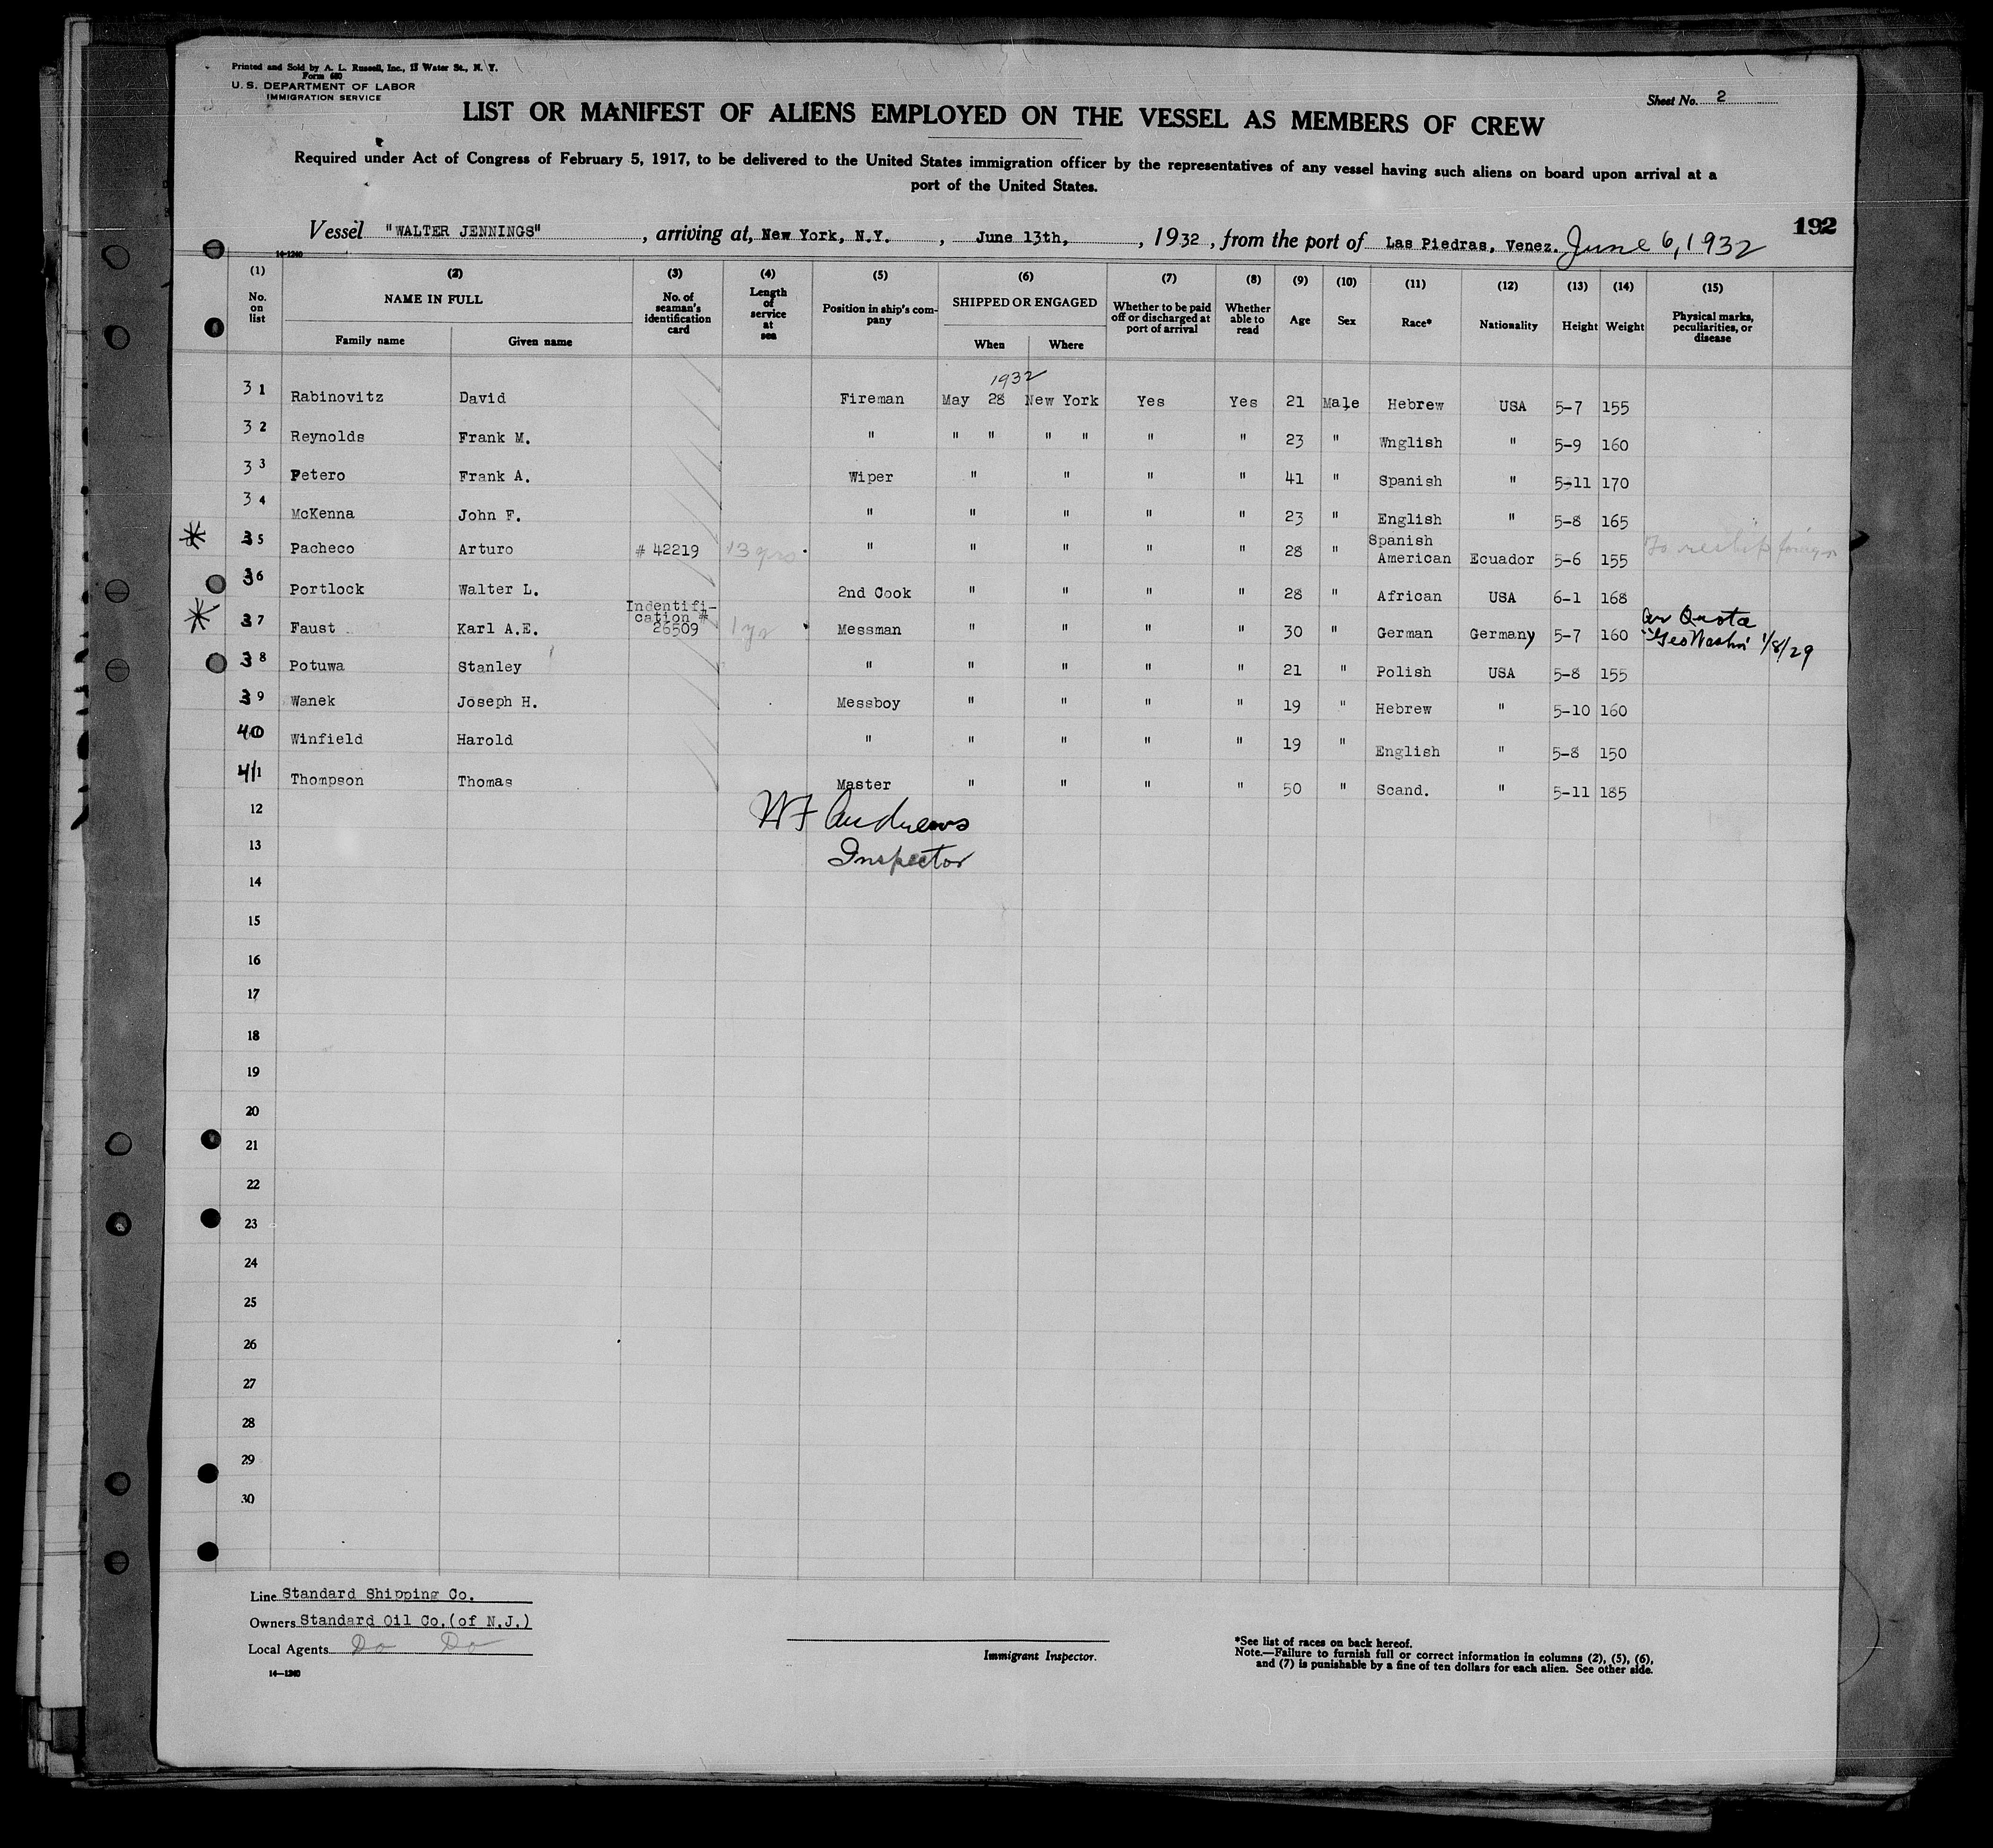 Printed and Sold by A. L. Russell, Inc., 15 Water St., N. Y.
Form 680
U. S. DEPARTMENT OF LABOR
IMMIGRATION SERVICE
Sheet No. 2
LIST OR MANIFEST OF ALIENS EMPLOYED ON THE VESSEL AS MEMBERS OF CREW
Required under Act of Congress of February 5, 1917, to be delivered to the United States immigration officer by the representatives of any vessel having such aliens on board upon arrival at a
port of the United States.
192
Vessel "WALTER JENNINGS", arriving at, New York, N.Y., June 13th, , 1932, from the port of Las Piedras, Venez. June 6, 1932
14-1240
(1) (2) (3) (4) (5) (6) (7) (8) (9) (10) (11) (12) (13) (14) (15)
No. on list NAME IN FULL Family name Given name No. of seaman's identification card Length of service at sea Position in ship's company SHIPPED OR ENGAGED When Where Whether to be paid off or discharged at port of arrival Whether able to read Age Sex Race* Nationality Height Weight Physical marks, peculiarities, or disease
1932
31 Rabinovitz David Fireman May 28 New York Yes Yes 21 Male Hebrew USA 5-7 155
32 Reynolds Frank M. " " " " " " " 23 " Wnglish " 5-9 160
33 Petero Frank A. Wiper " " " " 41 " Spanish " 5-11 170
34 McKenna John F. " " " " " 23 " English " 5-8 165
* 35 Pacheco Arturo # 42219 13 yrs " " " " " 28 " Spanish American Ecuador 5-6 155 To reship foreign
36 Portlock Walter L. 2nd Cook " " " " 28 " African USA 6-1 168
* 37 Faust Karl A.E. Indentifi-cation # 26509 1 yr Messman " " " " 30 " German Germany 5-7 160 Quota "Geo Washn" 1/8/29
38 Potuwa Stanley " " " " " 21 " Polish USA 5-8 155
39 Wanek Joseph H. Messboy " " " " 19 " Hebrew " 5-10 160
40 Winfield Harold " " " " " 19 " English " 5-8 150
41 Thompson Thomas Master " " " " 50 " Scand. " 5-11 185
12 W F Andrews
13 Inspector
14
15
16
17
18
19
20
21
22
23
24
25
26
27
28
29
30
Line Standard Shipping Co.
Owners Standard Oil Co. (of N.J.)
Local Agents Do Do
14-1240
Immigrant Inspector.
*See list of races on back hereof.
Note.—Failure to furnish full or correct information in columns (2), (5), (6),
and (7) is punishable by a fine of ten dollars for each alien. See other side.